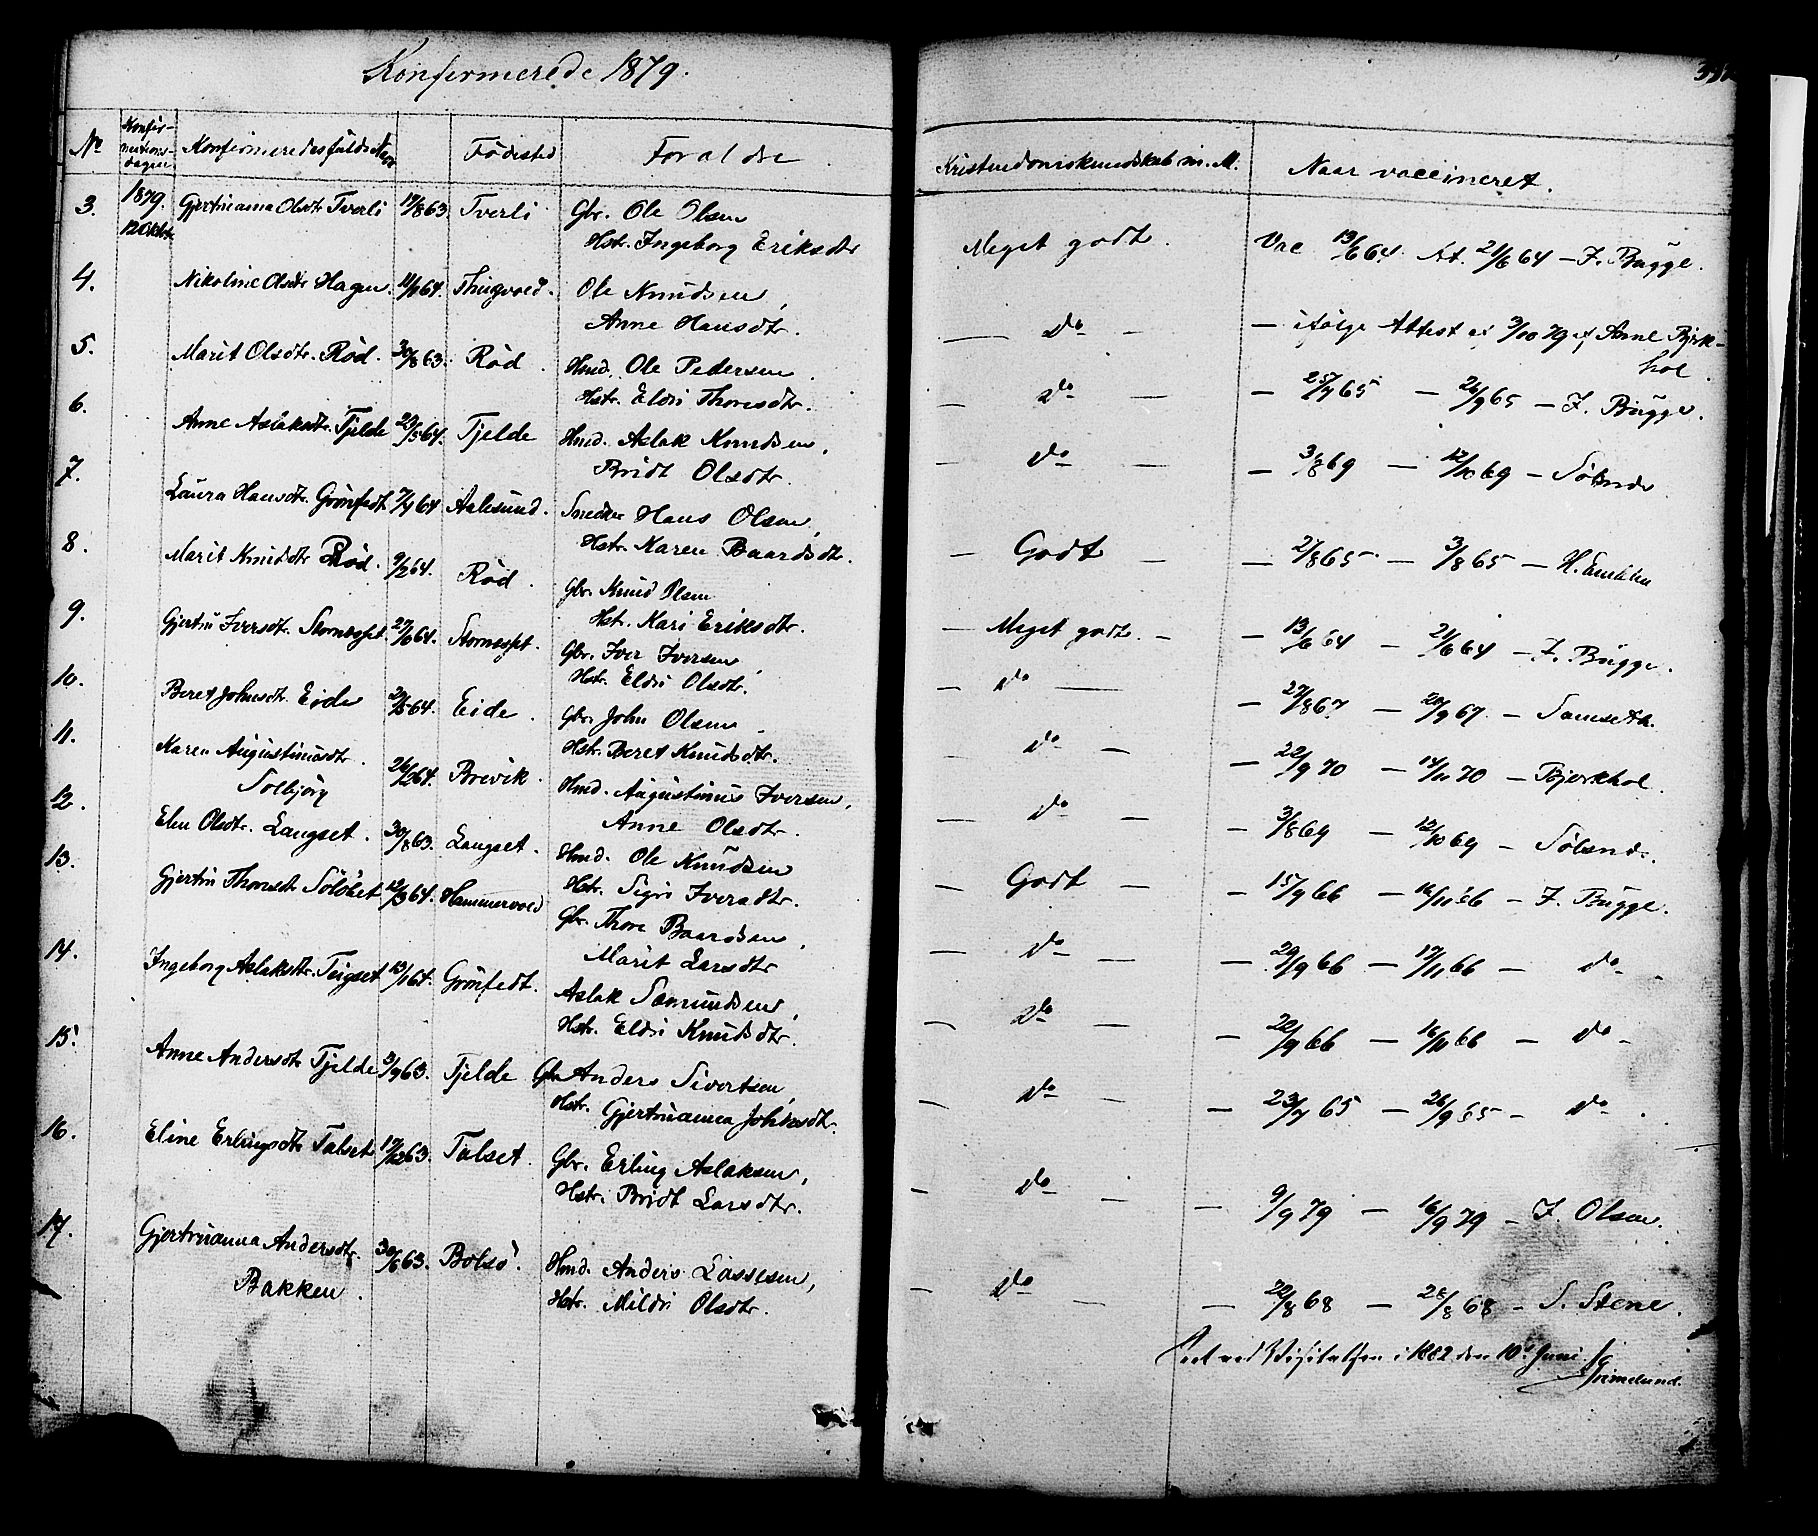 Konfermerede 1879.
No Konfir-mations-dagen Konfirmeredes fulde Navn Födested Foraldre Kristendomskundskab m. M. Naar vaccineret.
3. 1879. 12 Oktbr Gjertruanna Olsdtr Tverli 17/8 63 Tverli Gbr. Ole Olsen Meget godt. Vac 13/6 64. At. 21/6 64 – F. Bugge.
Hstr. Ingeborg Eriksdtr
4. Nikoline Olsdtr Hagen. Thingvold. Ole Knudsen, — Do — — ifölge Attest af 3/10 79 af Arne Bjerk-
Anne Hansdtr. hol.
5. Marit Olsdtr. Röd. 30/8 63. Röd. Hmd. Ole Pedersen — Do — — 25/7 65 — 26/9 65 – F. Bugge.
Hstr. Eldri Thoresdtr.
6. Anne Aslaksdtr. Tjelde 23/5 64. Tjelde Hmd. Aslak Knudsen, — Do — — 3/8 69 — 12/10 69 – Sölsnes
Bridt Olsdtr.
7. Laura Hansdtr. Grönfedt 7/7 64 Aalesund. Snedker Hans Olsen, — Godt — — 27/8 65 — 3/8 65 —
Hstr. Karen Baardsdtr.
8. Marit Knudsdtr Röd. 9/2 64. Röd. Gbr. Knud Olsen — Meget godt. — — 13/6 64 — 21/6 64 – F. Bugge.
Hstr. Kari Eriksdtr.
9. Gjertru Iversdtr. 27/6 64. Gbr. Iver Iversen — Do — — 27/8 67 — 20/9 67. – Samseth.
Hstr. Eldri Olsdtr.
10. Beret Johnsdtr. Eide 29/5 64. Eide. Gbr. John Olsen — Do — — 22/9 70 — 14/11 70 – Bjerkhol.
Hstr. Beret Knudsdtr.
11. Karen Augustinusdtr. 26/2 64. Brevik. Hmd. Augustinus Iversen, — Do — — 3/8 69 — 12/10 69 – Sölsnes.
Solbjörg Anne Olsdtr.
12. Elen Olsdtr. Langset. 30/8 63. Langset. Hmd. Ole Knudsen — Godt — — 15/9 66 — 16/11 66 – F. Bugge.
Hstr. Sigri Iversdtr.
13. Gjertru Thoresdtr 12/3 64. Hammervold Gbr. Thore Baardsen, — Do — — 29/9 66 — 17/11 66 — Do
Marit Larsdtr
14. Ingeborg Aslaksdtr. Teigset 13/1 64. Grönfedt. Aslak Samundsen, — Do — — 22/9 66 — 16/11 66 — Do —
Hstr. Eldri Knudsdtr.
15. Anne Andersdtr Tjelde 3/9 63. Tjelde Gbr. Anders Sivertsen, — Do — — 23/7 65 — 26/9 65 – Do
Hstr. Gjertruanna Johnsdtr.
16. Eline Erlingsdtr Talset 17/12 63. Talset. Gbr. Erling Aslaksen, — Do — — 9/9 79 — 16/9 79 – F. Olsen.
Hstr. Bridt Larsdtr.
17. Gjertruanna Andersdtr. 30/6 63. Bolsö. Hmd. Anders Lassesen, — Do — — 22/8 68 — 28/8 68 – S. Stene.
Bakken. Hstr. Mildri Olsdtr.
Seet ved Visitatsen i 1882 den 10de Juni
Grimelund.